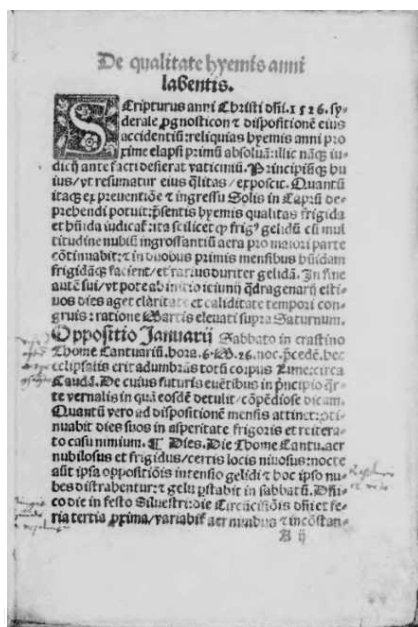 De qualitate hyemis anni
labentis.
SCripturus anni Christi dñi.1526.sy-
derale ꝓgnosticon ⁊ dispositionē eius
accidentiū:reliquias hyemis anni pro
xime elapsi primū absoluā:illic nāqꝫ iu-
dicij ante facti desierat vaticiniū. Principiūqꝫ hu
ius/vt resumatur eius q̄litas/exposcit. Quantū
itaqꝫ ex preventiōe ⁊ ingressu Solis in Caprū de-
prehendi potuit:p̄sentis hyemis qualitas frigida
et hūida iudicať:ita scilicet
titudine nubiū ingrossantiū aera pro maiori parte
cōtinuabit:⁊ in duobus primis mensibus hūidam
frigidāqꝫ facient/et rarius duriter gelidā. In fine
autē sui/vtpote ab initio ieiunij qdragenarij esti-
vos dies aget claritate et caliditate tempori con-
gruis:ratione Martis elevati supra Saturnum.
Oppositio Januarij Sabbato in crastino
Thome Cantuariē.hora.6.M.26.noc.p̄cedē.hec
eclipsalis erit adumbrās totū corpus Lune:circa
Caudā. De cuius futuris evētibus in pncipio q̄r-
te vernalis in quā eosdē detulit/cōpēdiose dicam.
Quantū vero ad dispositionē mensis attinet:
nuabit dies suos in asperitate frigoris et reitera-
to casu nimium. ¶ Dies. Die Thome Cantu.aer
nubilosus et frigidus/certis locis nivosus:nocte
aūt ipsa oppositiōis intensio gelidi ⁊ hoc ipso nu-
bes distrahentur:⁊ gelu ꝓstabit in sabbatū. Dñi-
co die in festo Silvestri:die Circūcisiōis dñi et fe-
ria tertia ꝓxima/variabiť aer nubibus ⁊ incōstan-
A ij